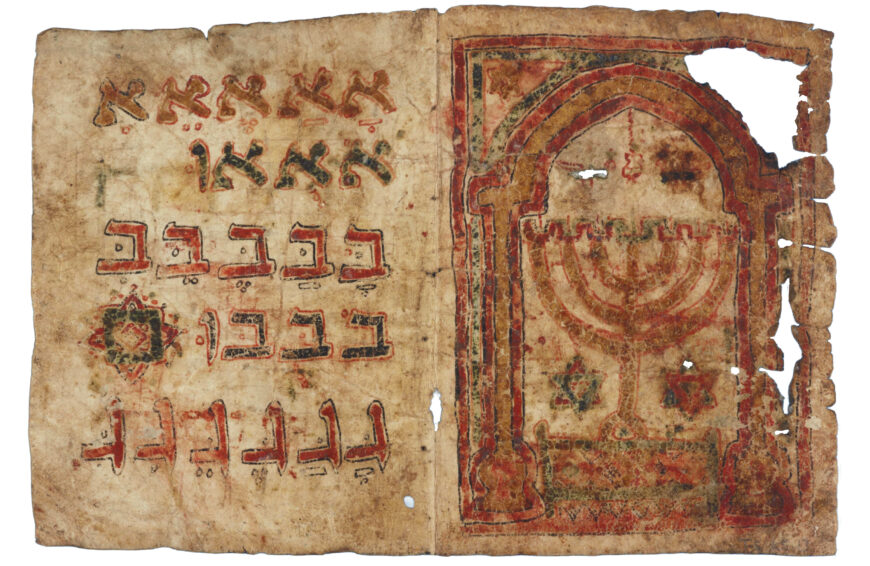 אָ אַ אֶ אֵ אִ
א א או
בָּ בַּ בֶּ בֵּ בִּ
ב ב בו
ג ג ג ג ג ג